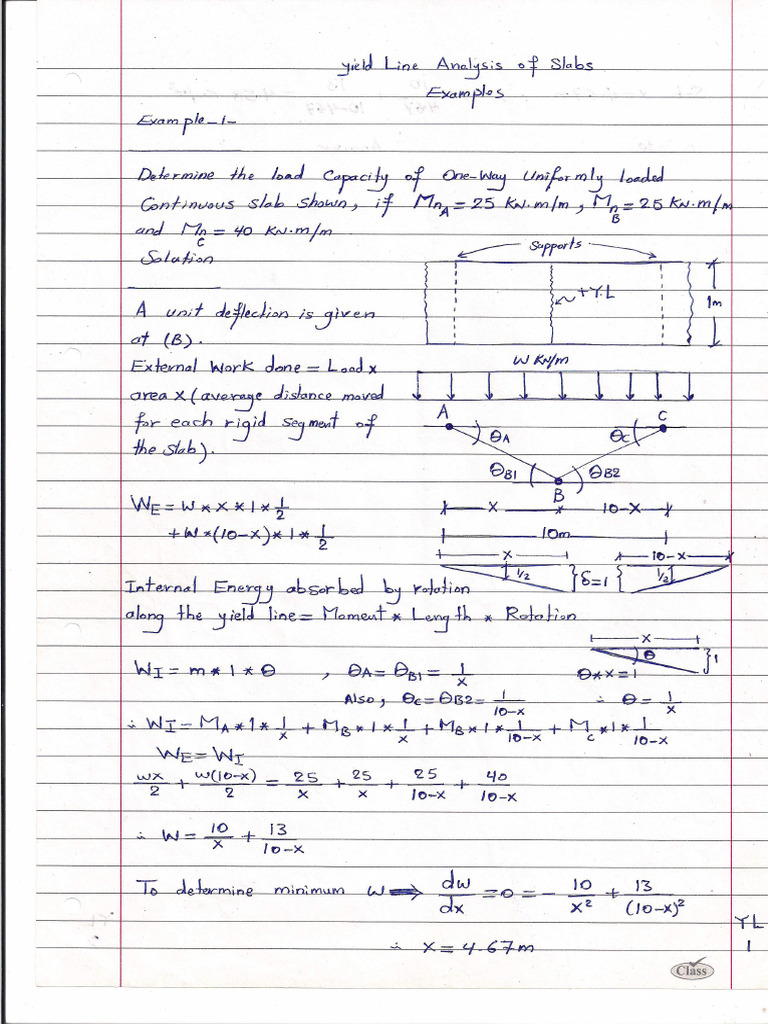 Yield Line Analysis of Slabs
Examples
Example-1-
Determine the load Capacity of One-Way Uniformly loaded
Continuous slab shown, if MnA = 25 KN.m/m, MnB = 25 KN.m/m
and MnC = 40 KN.m/m
Solution
supports
+Y.L
1m
A unit deflection is given
at (B).
W KN/m
External Work done = Load x
area x (average distance moved
for each rigid segment of
the slab).
A
C
θA
θC
θB1
θB2
B
X
10-X
10m
WE = W * X * 1 * 1/2
+ W * (10-X) * 1 * 1/2
X
10-X
1/2
δ=1
1/2
Internal Energy absorbed by rotation
along the yield line = Moment * Length * Rotation
X
θ
1
θ*X=1
∴ θ = 1/X
WI = m * 1 * θ , θA = θB1 = 1/X
Also, θC = θB2 = 1/(10-X)
∴ WI = MA * 1 * 1/X + MB * 1 * 1/X + MB * 1 * 1/(10-X) + MC * 1 * 1/(10-X)
WE = WI
WX/2 + W(10-X)/2 = 25/X + 25/X + 25/(10-X) + 40/(10-X)
∴ W = 10/X + 13/(10-X)
To determine minimum W ⟹ dw/dx = 0 = - 10/X² + 13/(10-X)²
∴ X = 4.67 m
YL
1
Class